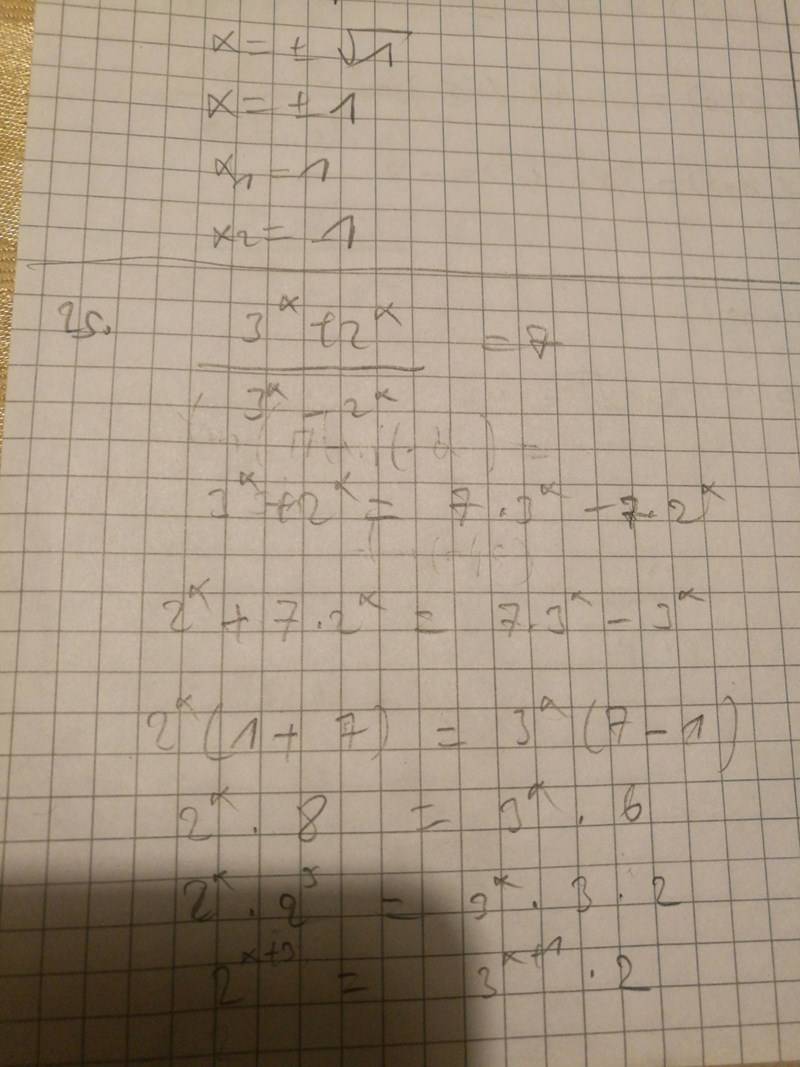 x = ± √1
x = ± 1
x₁ = 1
x₂ = -1
25. (3^x + 2^x) / (3^x - 2^x) = 7
3^x + 2^x = 7 · 3^x - 7 · 2^x
2^x + 7 · 2^x = 7 · 3^x - 3^x
2^x (1 + 7) = 3^x (7 - 1)
2^x · 8 = 3^x · 6
2^x · 2^3 = 3^x · 3 · 2
2^(x+3) = 3^(x+1) · 2